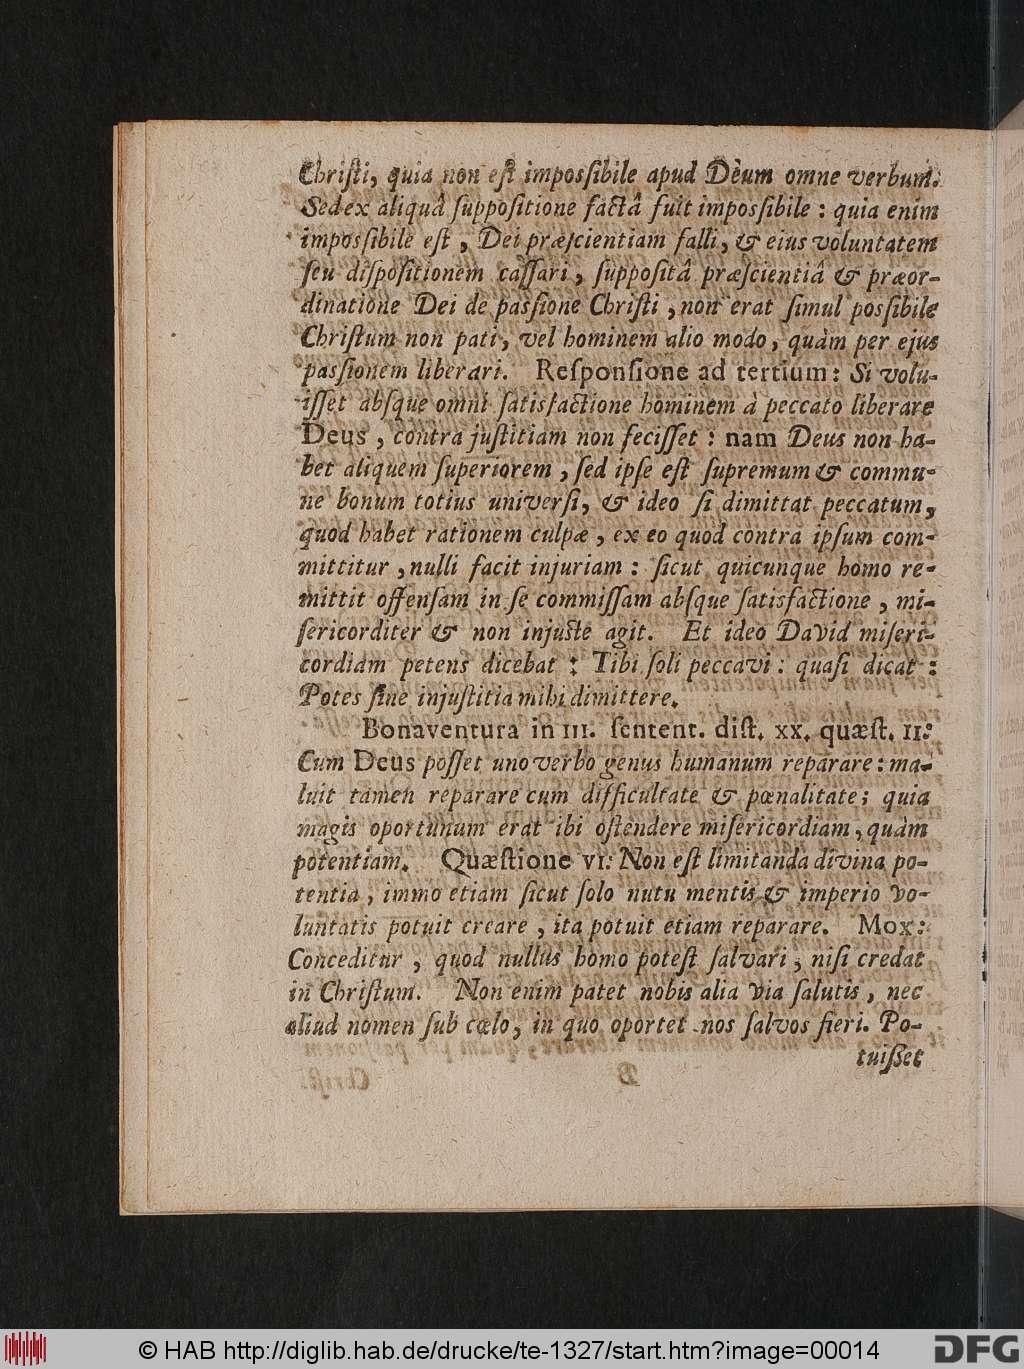 Chriſti, quia non eſt impoſſibile apud Dèum omne verbum.
Sed ex aliquâ ſuppoſitione factâ fuit impoſſibile : quia enim
impoſſibile eſt, Dei præſcientiam falli, & eius voluntatem
ſeu diſpoſitionem caſſari, ſuppoſitâ præſcientiâ & præor-
dinatione Dei de paſſione Chriſti, non erat ſimul poſſibile
Chriſtum non pati, vel hominem alio modo, quàm per ejus
paſſionem liberari. Reſponſione ad tertium: Si volu-
iſſet abſque omni ſatisfactione hominem à peccato liberare
Deus, contra juſtitiam non feciſſet : nam Deus non ha-
bet aliquem ſuperiorem, ſed ipſe eſt ſupremum & commu-
ne bonum totius univerſi, & ideo ſi dimittat peccatum,
quod habet rationem culpæ, ex eo quod contra ipſum com-
mittitur, nulli facit injuriam : ſicut quicunque homo re-
mittit offenſam in ſe commiſſam abſque ſatisfactione, mi-
ſericorditer & non injuſte agit. Et ideo David miſeri-
cordiam petens dicebat : Tibi ſoli peccavi : quaſi dicat :
Potes ſine injuſtitia mihi dimittere.
Bonaventura in III. ſentent. diſt. XX. quæſt. II:
Cum Deus poſſet uno verbo genus humanum reparare: ma-
luit tamen reparare cum difficultate & pœnalitate; quia
magis oportunum erat ibi oſtendere miſericordiam, quàm
potentiam. Quæſtione VI: Non eſt limitanda divina po-
tentia, immo etiam ſicut ſolo nutu mentis & imperio vo-
luntatis potuit creare, ita potuit etiam reparare. Mox:
Conceditur, quod nullus homo poteſt ſalvari, niſi credat
in Chriſtum. Non enim patet nobis alia via ſalutis, nec
aliud nomen ſub cœlo, in quo oportet nos ſalvos fieri. Po-
tuiſſet
© HAB http://diglib.hab.de/drucke/te-1327/start.htm?image=00014
DFG